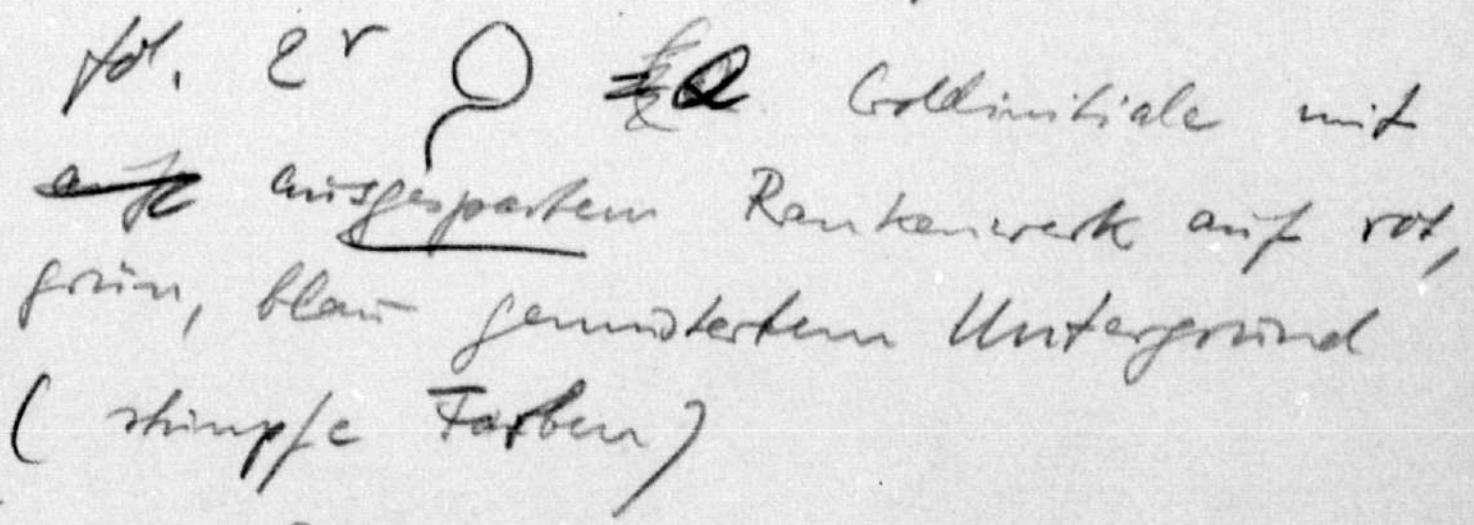 fol. 2r Q Goldinitiale mit
ausgespartem Rankenwerk auf rot,
grün, blau gemustertem Untergrund
(stumpfe Farben)